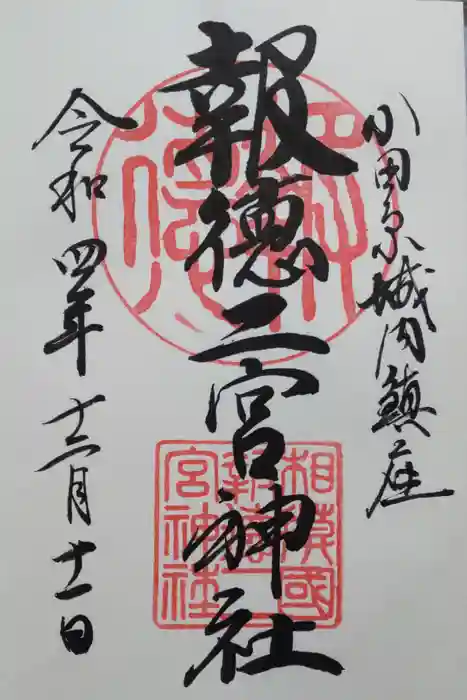 小田原城内鎮座
報徳二宮神社
令和四年十二月十一日
相模國
報徳二
宮神社